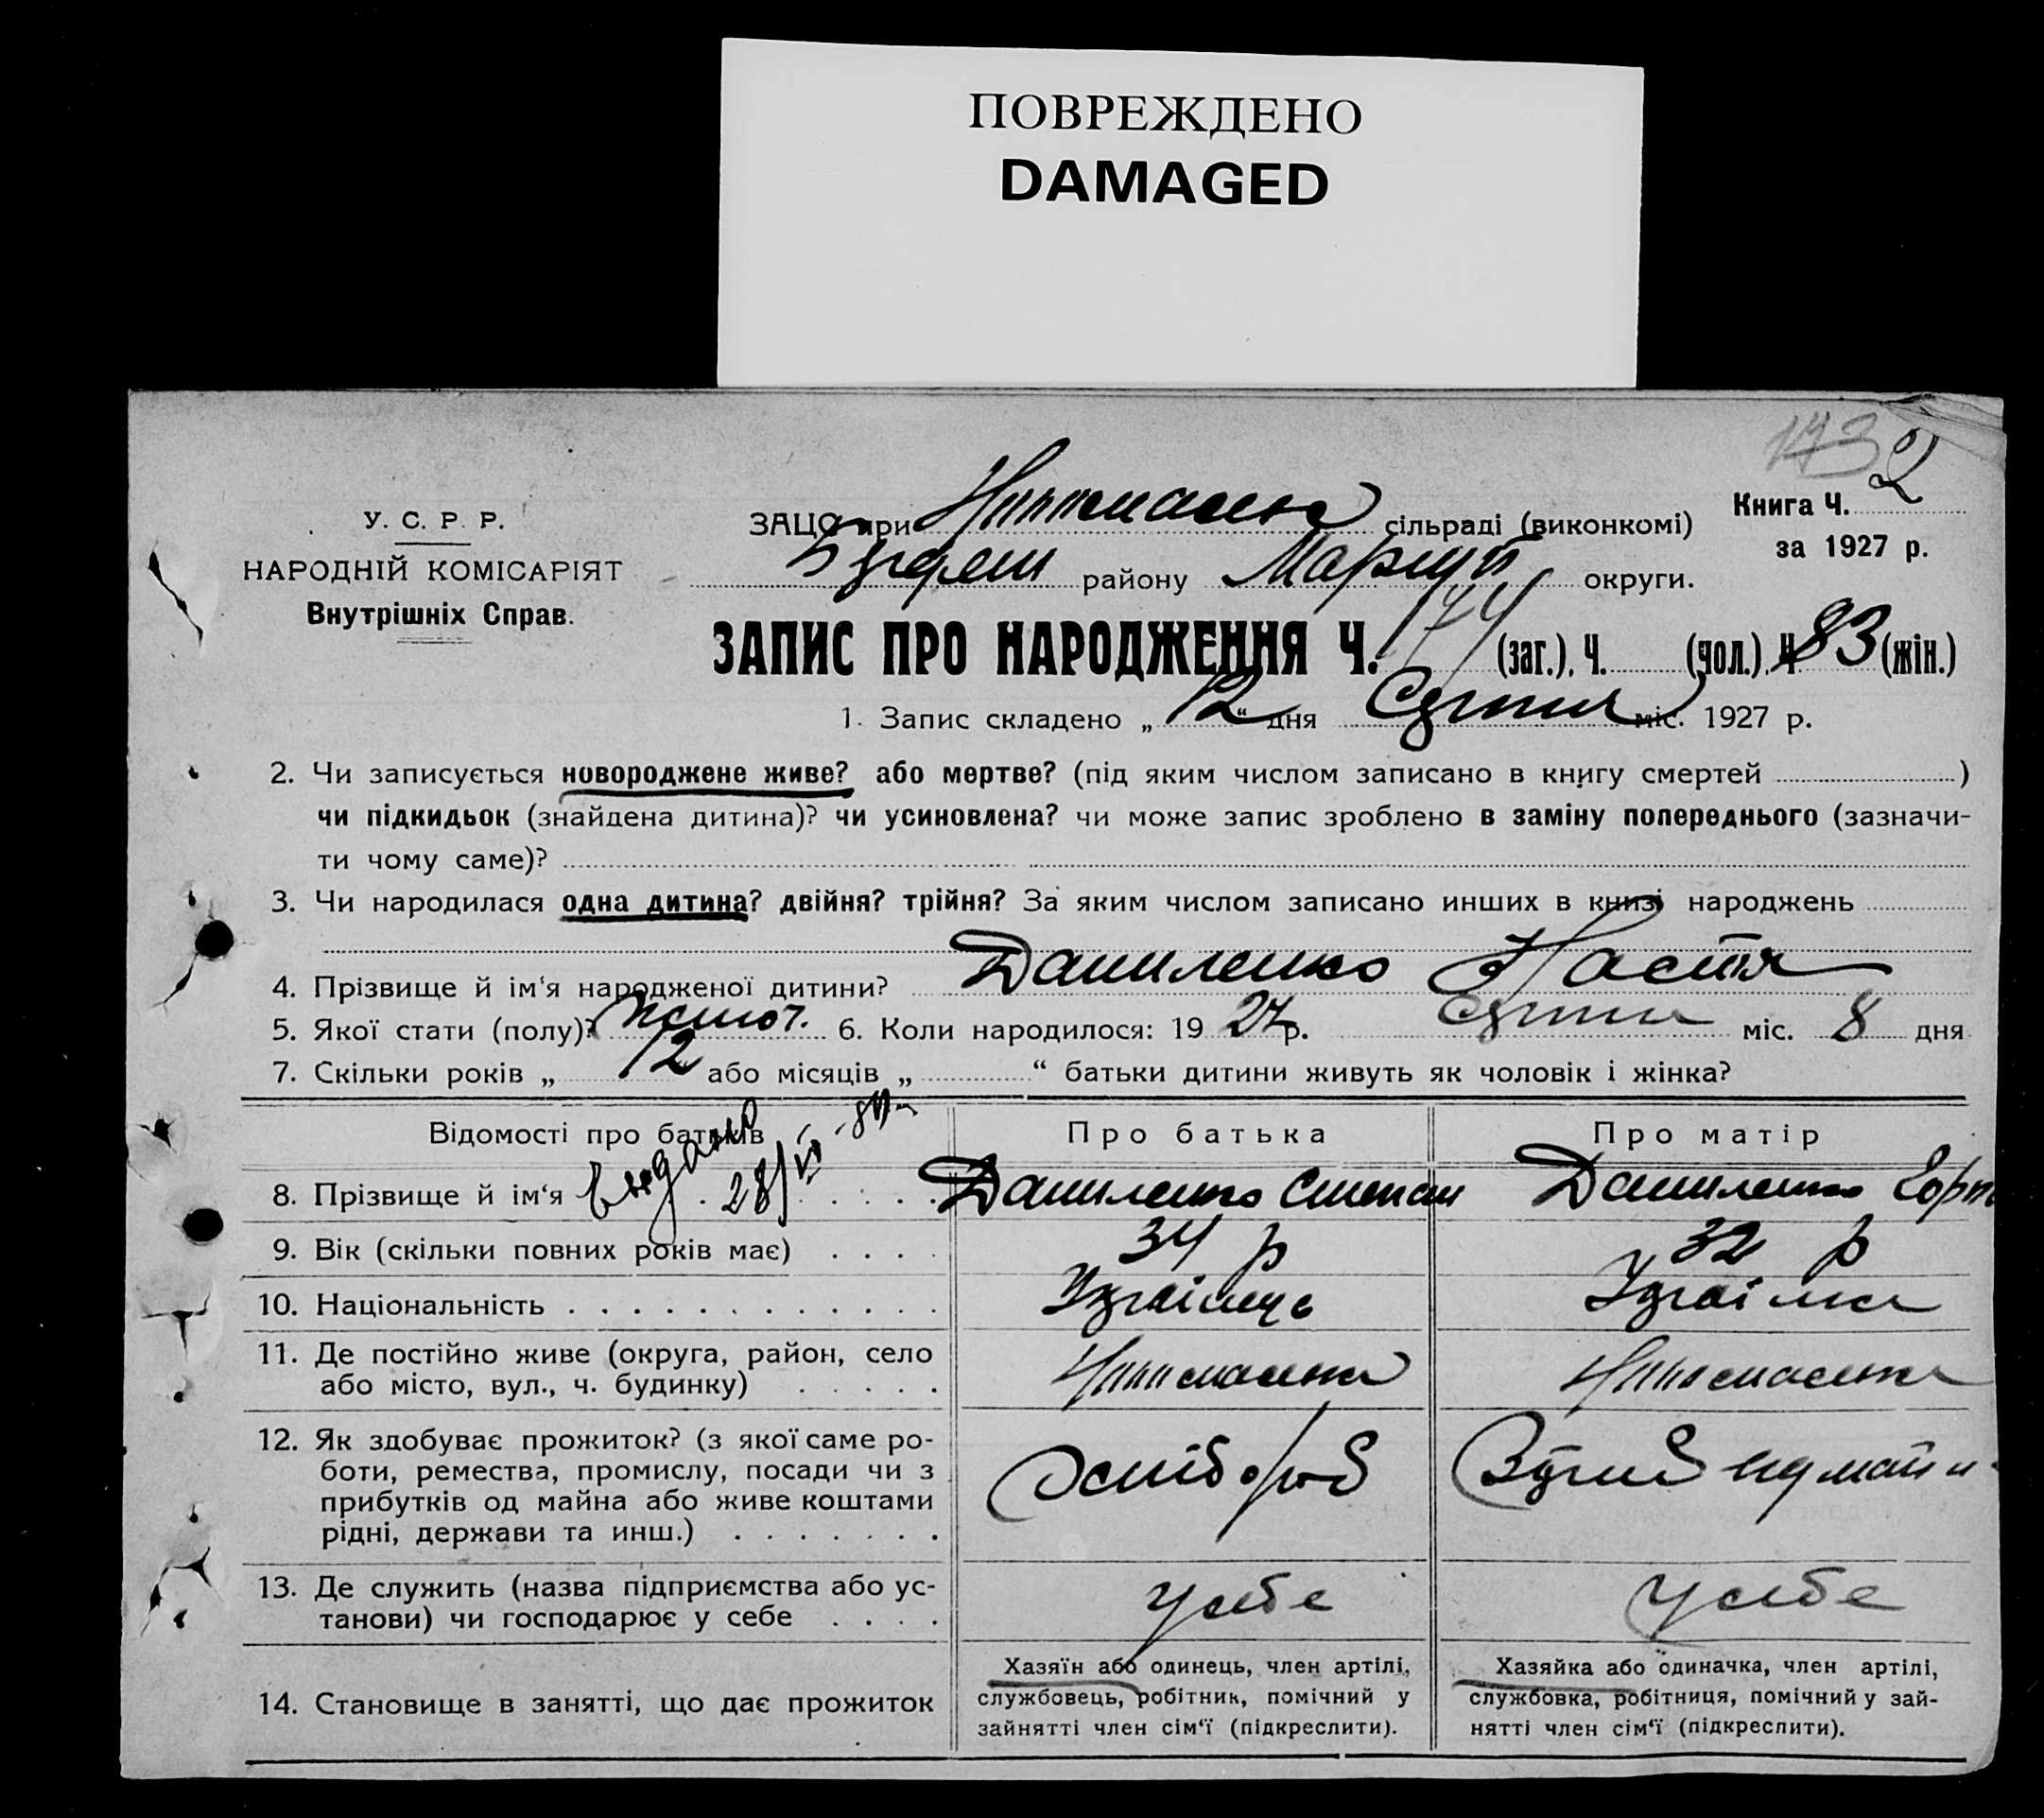 ПОВРЕЖДЕНО
DAMAGED
173 2
У. С. Р. Р.
НАРОДНІЙ КОМІСАРІЯТ
Внутрішніх Справ.
ЗАЦС при сільраді (виконкомі)
району Маріуп округи.
Книга Ч.
за 1927 р.
ЗАПИС ПРО НАРОДЖЕННЯ Ч. 174 (заг.), Ч. (чол.), Ч. 83 (жін.)
1. Запис складено „ 12 “ дня Серпня міс. 1927 р.
2. Чи записується новороджене живе? або мертве? (під яким числом записано в книгу смертей )
чи підкидьок (знайдена дитина)? чи усиновлена? чи може запис зроблено в заміну попереднього (зазначи-
ти чому саме)?
3. Чи народилася одна дитина? двійня? трійня? За яким числом записано инших в книзі народжень
4. Прізвище й ім‘я народженої дитини? Даниленко Настя
5. Якої стати (полу)? жіноч. 6. Коли народилося: 19 27 р. Серпня міс. 8 дня
7. Скільки років „ 12 або місяців „ “ батьки дитини живуть як чоловік і жінка?
Відомості про батьків
Про батька
Про матір
Видано 28/VI
8. Прізвище й ім‘я Даниленко Степан Даниленко
9. Вік (скільки повних років має) 34 р 32 р
10. Національність Украінець Украінка
11. Де постійно живе (округа, район, село
або місто, вул., ч. будинку)
12. Як здобуває прожиток? (з якої саме ро-
боти, ремества, промислу, посади чи з
прибутків од майна або живе коштами
рідні, держави та инш.)
Хлібороб
13. Де служить (назва підприємства або ус-
танови) чи господарює у себе
У себе У себе
14. Становище в занятті, що дає прожиток
Хазяїн або одинець, член артілі,
службовець, робітник, помічний у
зайнятті член сім‘ї (підкреслити).
Хазяйка або одиначка, член артілі,
службовка, робітниця, помічний у зай-
нятті член сім‘ї (підкреслити).